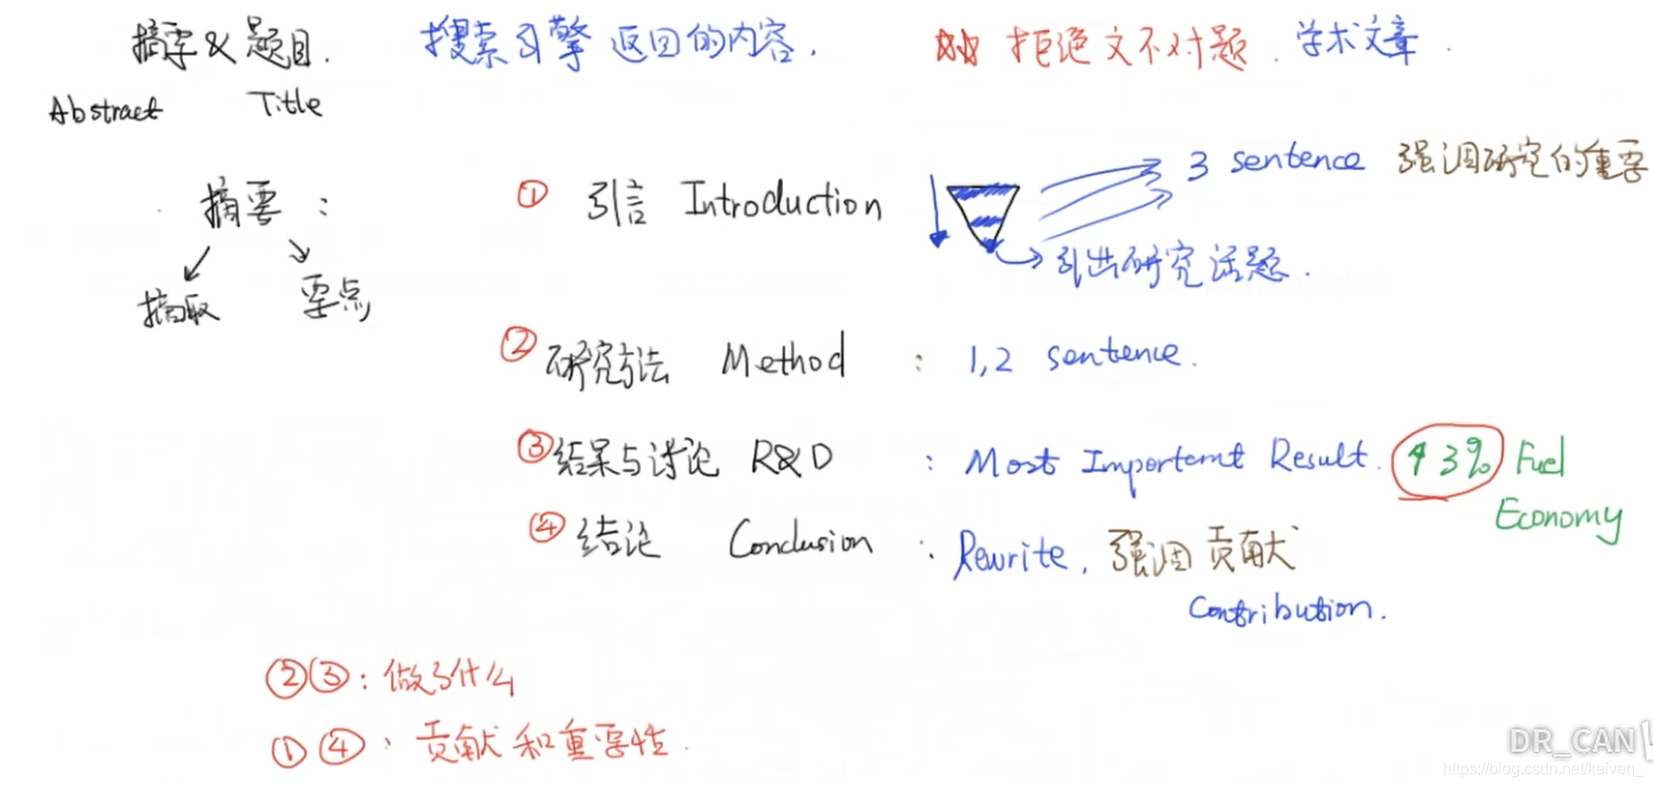 摘要 & 题目. 搜索引擎 返回的内容. 拒绝文不对题. 学术文章.
Abstract Title
摘要:
摘取 要点
① 引言 Introduction 3 sentence 强调研究的重要
引出研究话题.
② 研究方法 Method : 1,2 sentence.
③ 结果与讨论 R&D : Most Importemt Result. ↑3% Fuel
Economy
④ 结论 Conclusion : Rewrite, 强调贡献
Contribution.
②③: 做了什么
①④: 贡献和重要性.
DR_CAN
https://blog.csdn.net/keiven_